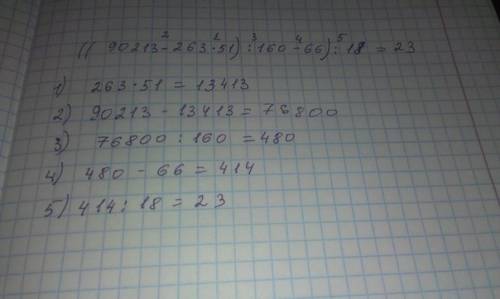 (( 90213 - 263 · 51) : 160 - 66) : 18 = 23
1) 263 · 51 = 13413
2) 90213 - 13413 = 76800
3) 76800 : 160 = 480
4) 480 - 66 = 414
5) 414 : 18 = 23